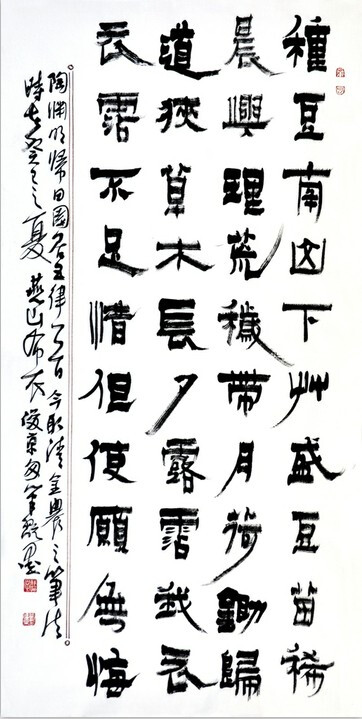 種豆南山下艸盛豆苗稀
晨興理荒穢帶月荷鋤歸
道狹草木長夕露霑我衣
衣霑不足惜但使願無悔
陶渊明歸田園居五律一首今取清金農之筆法
時在之夏燕山布衣